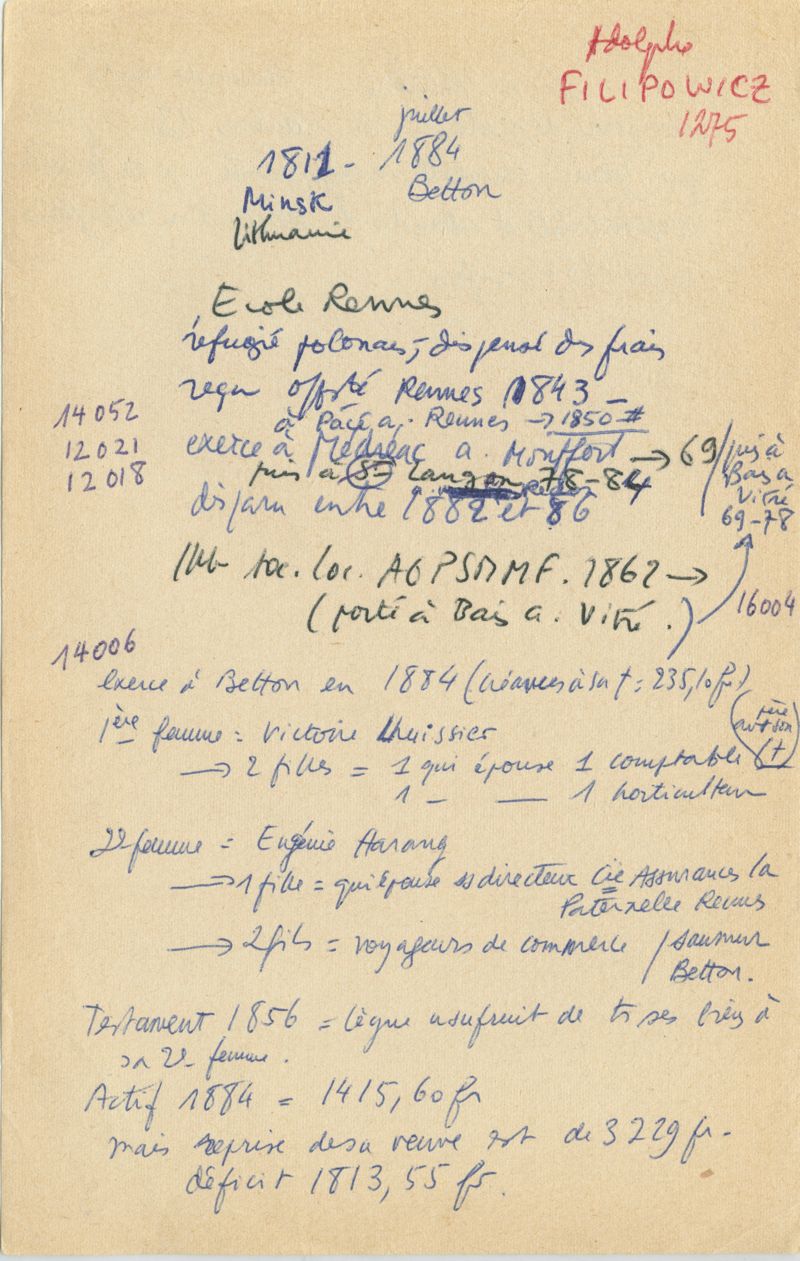 Adolphe
FILIPOWICZ
1275
juillet
1811 - 1884
Minsk Betton
Lithuanie
Ecole Rennes
réfugié polonais, dispensé des frais
reçu offté Rennes 1843 -
14052 à Pacé a. Rennes → 1850 #
12021 exerce à Médréac a. Montfort → 69 / puis à
12018 puis à St Langan 78-84 Bais a
disparu entre 1882 et 86 Vitré
69-78
soc. loc. AGPSDMF. 1862 →
(porté à Bais a. Vitré.) 16004
14006
exerce à Betton en 1884 (créances à sa † = 235,10 fr)
1ère femme = Victoire Lhuissier
→ 2 filles = 1 qui épouse 1 comptable (†
1 — — 1 horticulteur
2e femme = Eugénie Harang
→ 1 fille = qui épouse ss directeur Cie Assurances la
Paternelle Rennes
→ 2 fils = voyageurs de commerce / Saumur
Betton.
Testament 1856 = lègue usufruit de ts ses biens à
sa 2e femme.
Actif 1884 = 1415,60 fr
mais reprise de sa veuve est de 3229 fr -
déficit 1813,55 fr.